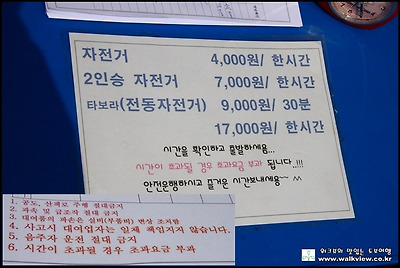 자전거 4,000원/ 한시간
2인승 자전거 7,000원/ 한시간
타보라(전동자전거) 9,000원/ 30분
17,000원/ 한시간
시간을 확인하고 출발하세요...
시간이 초과될 경우 초과요금 부과 됩니다.!!!
안전운행하시고 즐거운 시간보내세요~ ^^
1. 공도, 산책로 주행 절대금지
2. 과속 및 급조작 절대 금지
3. 대여품의 파손은 실비(부품비) 변상 조치함
4. 사고시 대여업자는 일체 책임지지 않습니다.
5. 음주자 운전 절대 금지
6. 시간이 초과될 경우 초과요금 부과
워크뷰와 맛있는 도보여행
www.walkview.co.kr